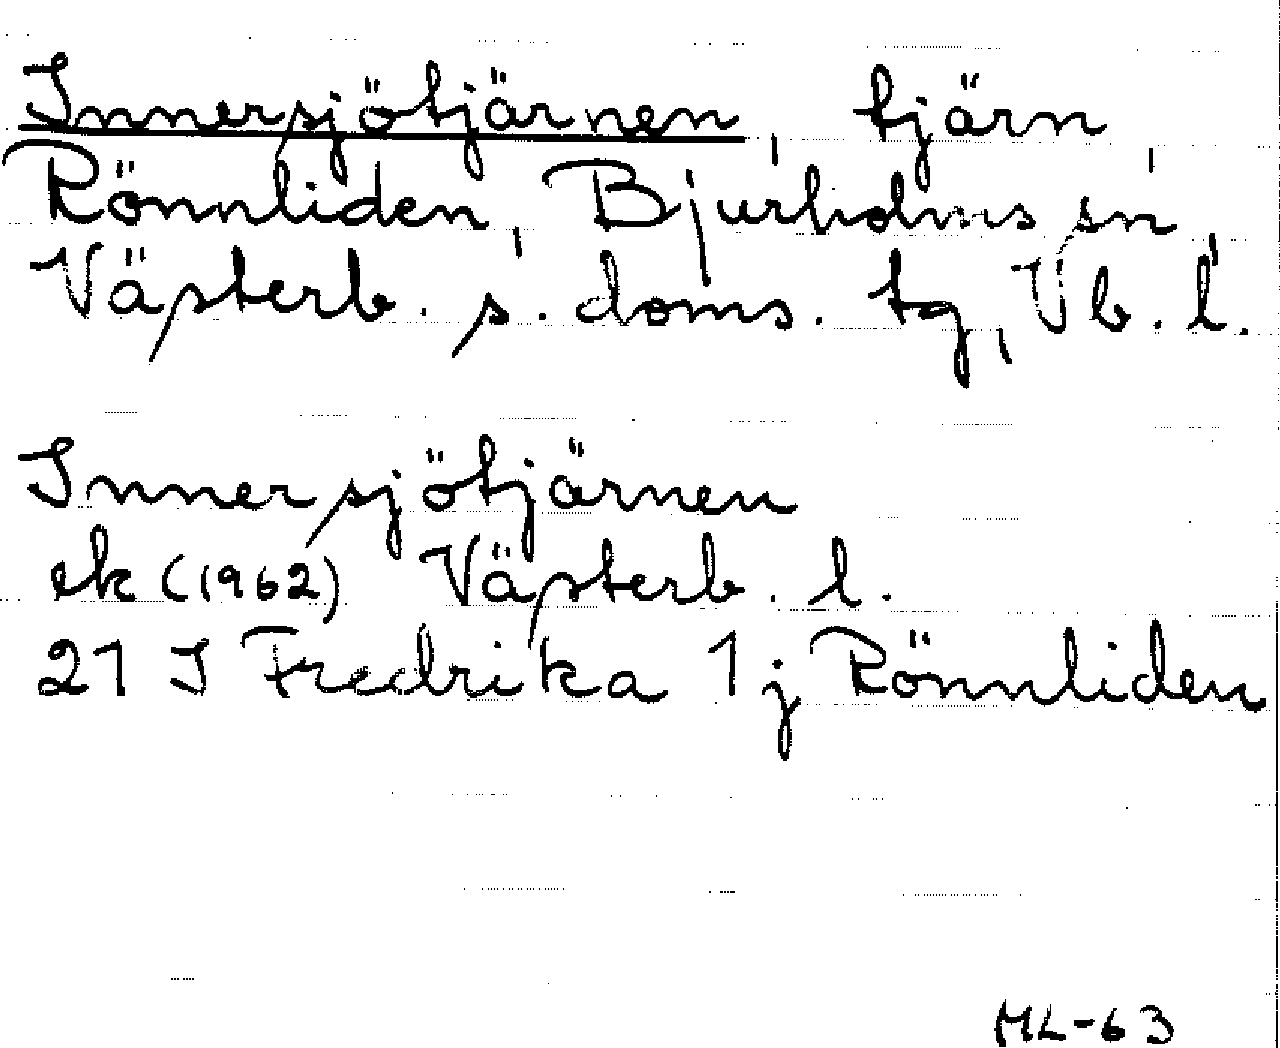 Innersjötjärnen, tjärn,
Rönnliden, Bjurholms sn,
Västerb. s. doms. tg, Vb. l.
Innersjötjärnen
ek (1962) Västerb. l.
21 J Fredrika 1 j Rönnliden
ML-63